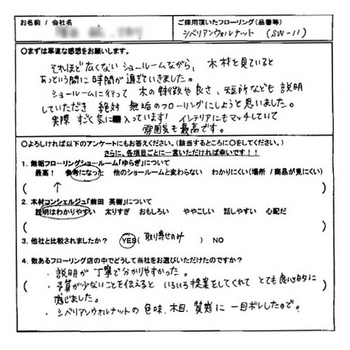 お名前 / 会社名
ご採用頂いたフローリング(品番等)
シベリアンウォルナット (SW-11)
○まずは率直な感想をお願いします。
それほど広くないショールームながら、木材を見ていると
あっという間に時間が過ぎていきました。
ショールームに行って 木の特徴や良さ、短所なども説明
していただき 絶対 無垢のフローリングにしようと思いました。
実際 すごく気に入っています! インテリアにもマッチしていて
雰囲気も最高です。
○よろしければ以下のアンケートにもお答えください。(該当するところに○をしてください。)
さらに、各項目ごとに一言いただければ幸いです!!
1. 無垢フローリングショールーム「ゆらぎ」について
最高! 参考になった 他のショールームと変わらない わかりにくい(場所 / 商品が見にくい)
( ↑ )
2. 木材コンシェルジュ「前田 英樹」について
説明はわかりやすい 太りすぎ おもしろい ややこしい 話しやすい 心配だ
( )
3. 他社と比較されましたか? YES( 取り寄せのみ ) NO
4. 数あるフローリング店の中でどうして当社をお選びいただけたのですか?
・説明が丁寧で分かりやすかった。
・予算が少ないことを伝えると いろいろ提案をしてくれて とても良心的に
感じました。
・シベリアンウォルナットの色味、木目、質感に一目ボレしたので。